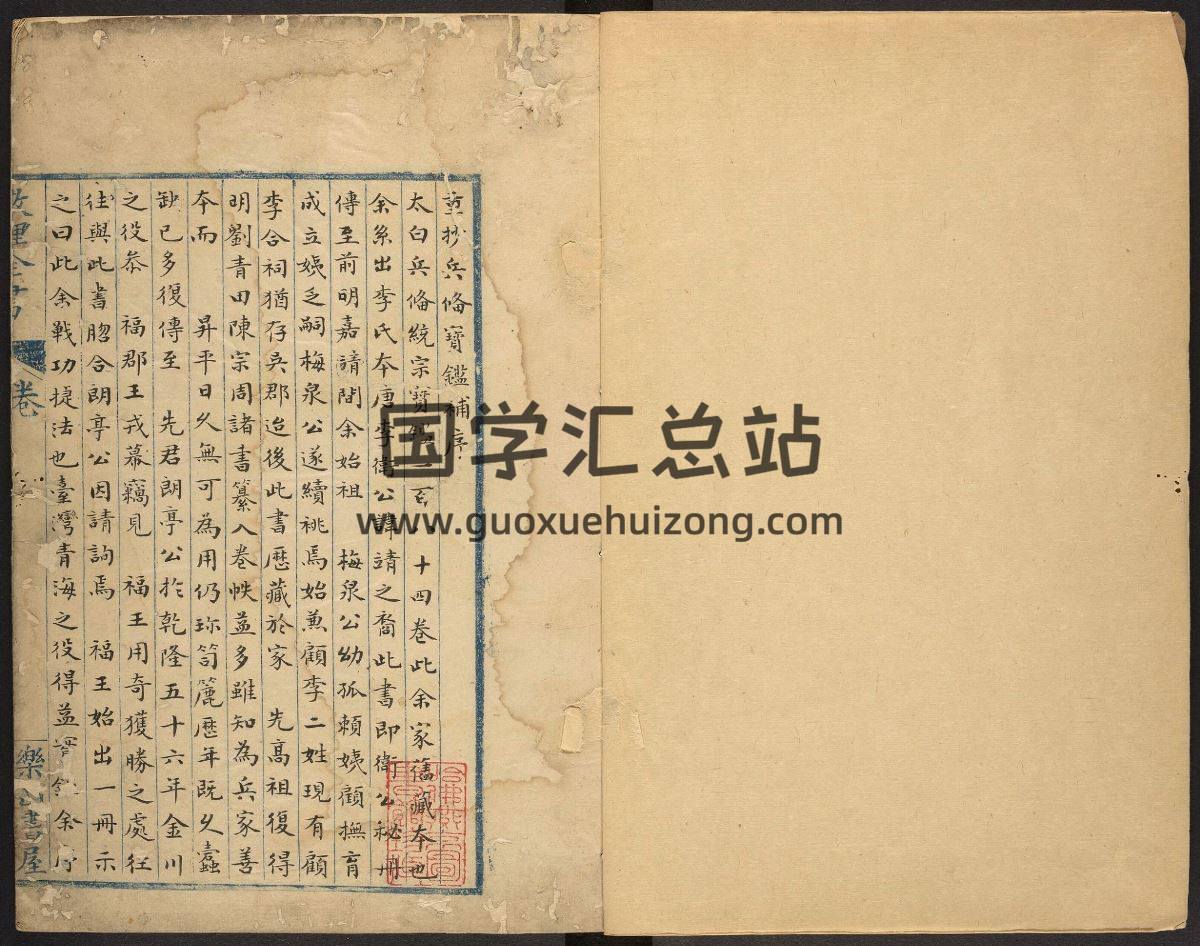 重抄兵倐寶鑑補序
太白兵倐統宗寶鑑一百 十四卷此余家舊藏本也
余系出李氏本唐李衛公諱靖之裔此書即衛公秘冊
傳至前明嘉請間余始祖 梅泉公幼孤賴姨顧撫育
成立姨乏嗣梅泉公遂續祧焉始兼顧李二姓現有顧
李合祠猶存吳郡迨後此書歷藏於家 先高祖復得
明劉青田陳宗周諸書纂入卷帙益多雖知為兵家善
本而 昇平日久無可為用仍珍笥簏歷年既久蠹
缺已多復傳至 先君朗亭公扵乾隆五十六年金川
之役恭 福郡王戎幕竊見 福王用奇獲勝之處徃
徃與此書脗合朗亭公因請詢焉 福王始出一冊示
之曰此余戰功捷法也臺灣青海之役得益 余
卷
樂 書屋
国学汇总站
www.guoxuehuizong.com